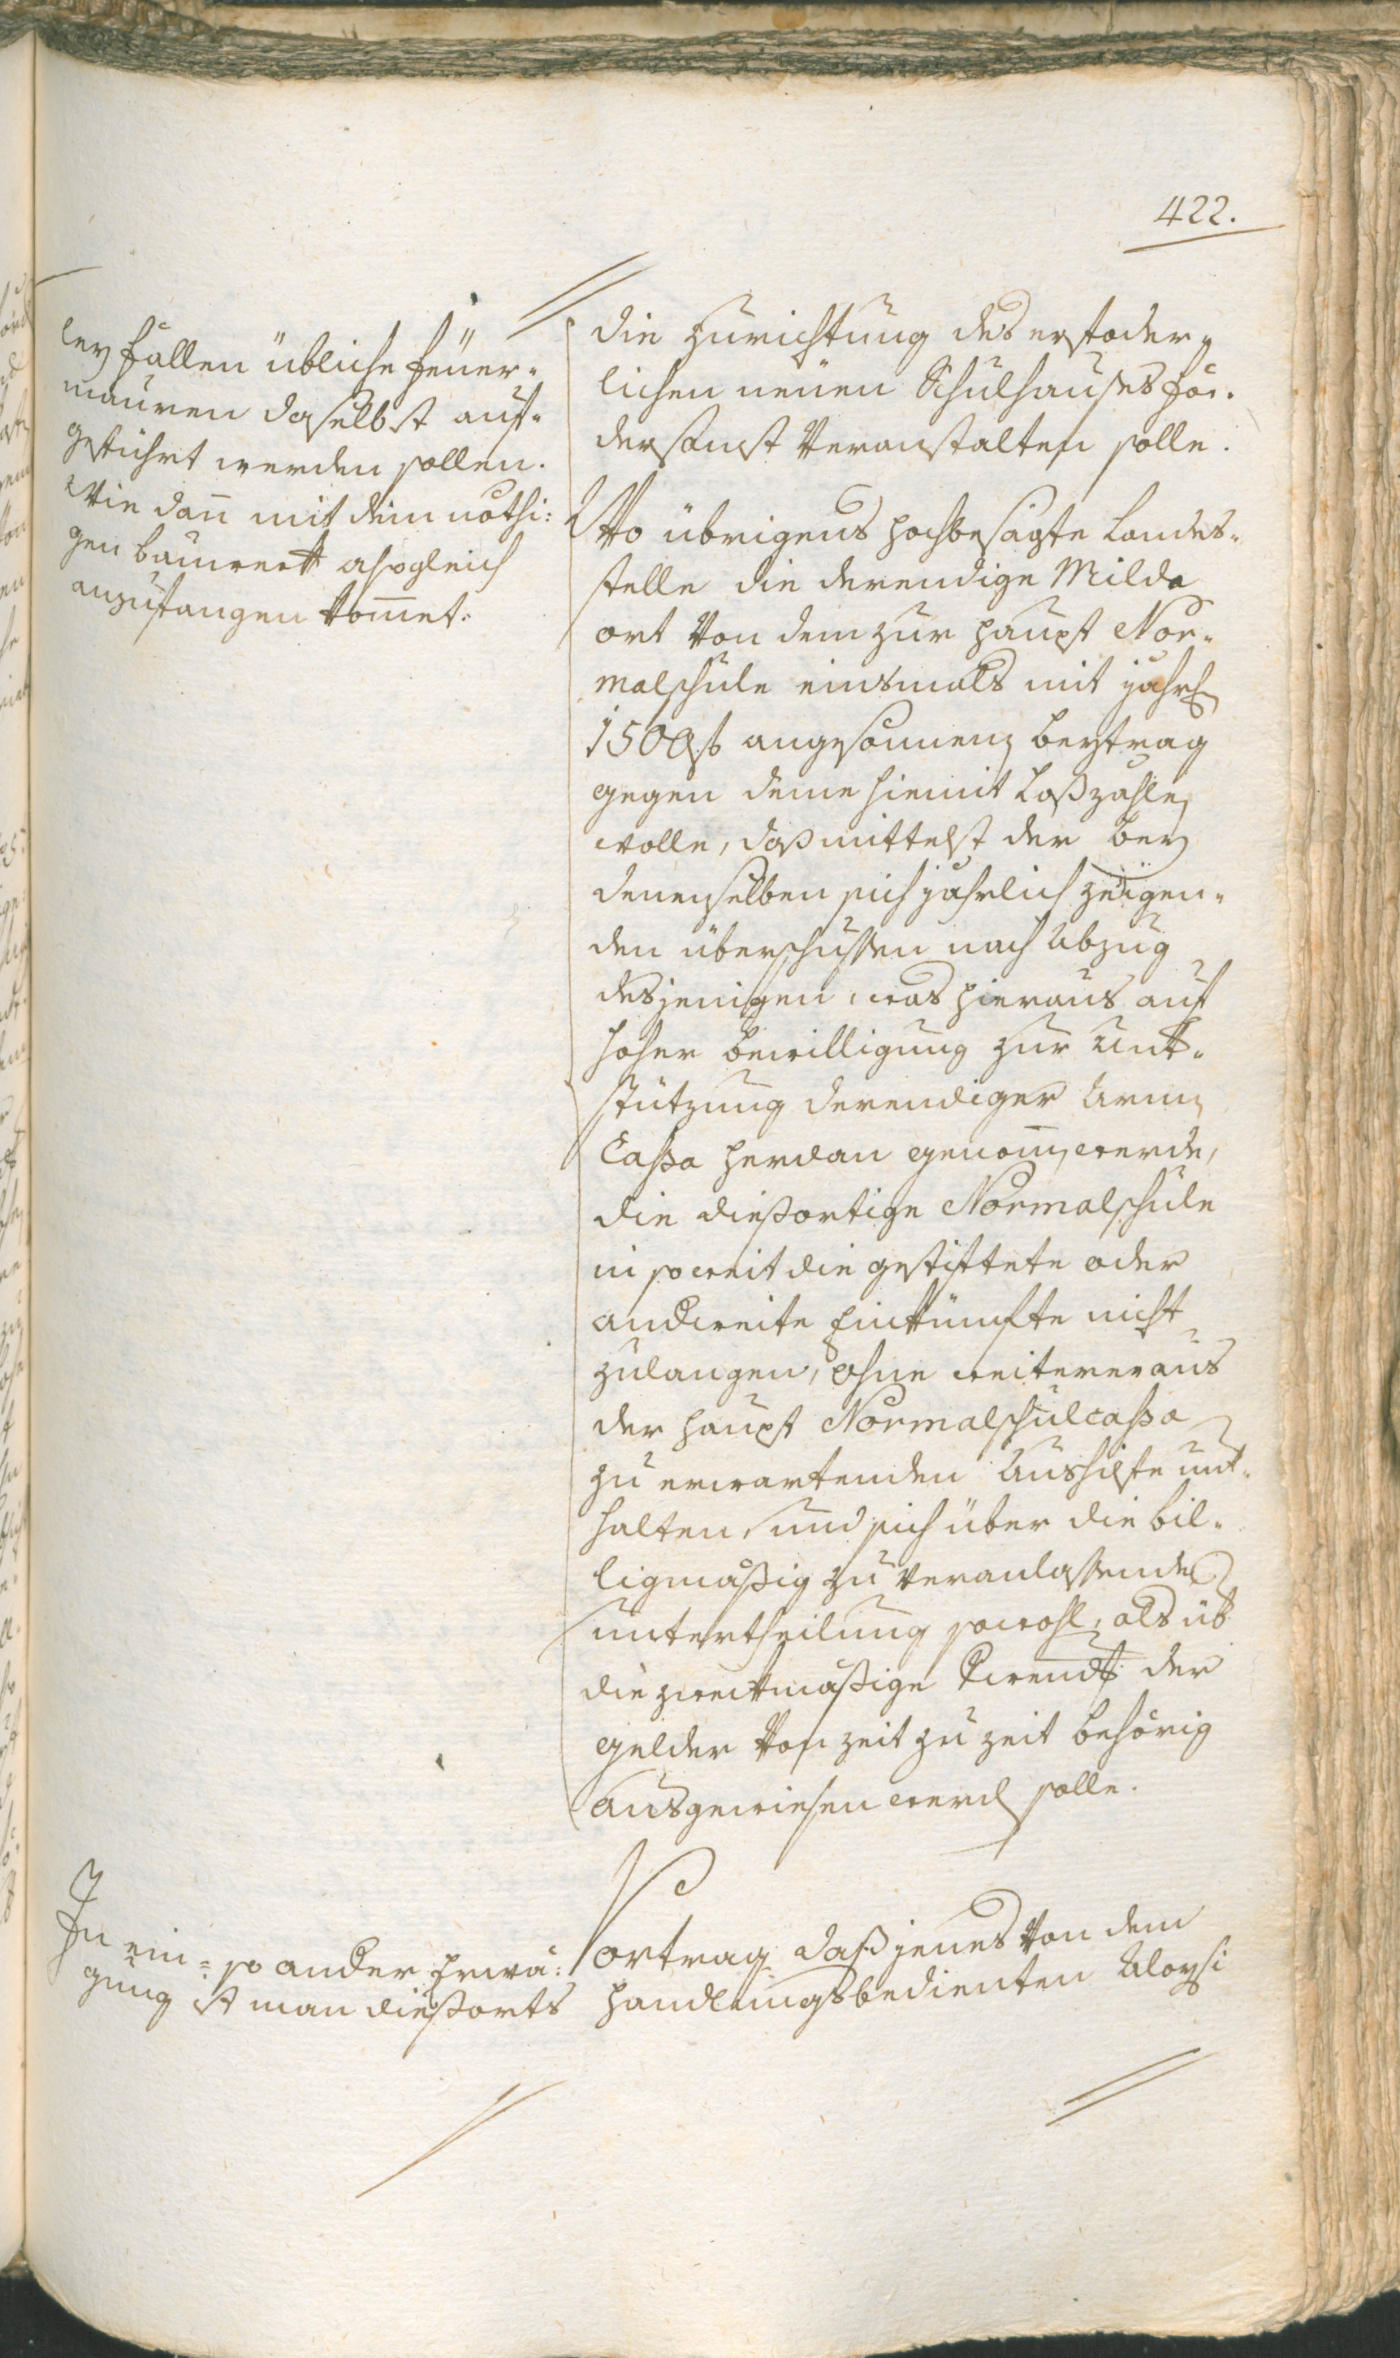 422.
ley fällen übliche feüer-
mauren daselbst auf-
geführt werden sollen.
Wie dañ mit dem nöthi:
gen bauwerk alsogleich
anzufangen kom̅et.
die Zurichtung des erfoder-
lichen neüen Schulhauses för-
dersamst veranstalten solle.
Wo übrigens hochbesagte Landes-
stelle die derendige Milde
ort von dem zur haupt Nor-
malschule einsmals mit jährl
1500 f angesonnenen beytrag
gegen deme hiemit loßzahlen
wolle, daß mittelst der bey
denenselben sich jährlich zeigen-
den überschüssen nach Abzug
desjenigen, was hieraus auf
hoher bewilligung zur Unt-
stützung derendiger Armen
Cassa herdan genom̅en werde,
die dießortige Normalschule
in so weit die gestiftete oder
anderweite Einkünfte nicht
zulangen, ohne weiterer aus
der haupt Normalschulcassa
zu erwartenden Aushilfe unt-
halten, und sich über die bil-
ligmäßig zu veranlassende
untertheilung sowohl, als üb
die zweckmäßige Verwend der
gelder von zeit zu zeit behörig
ausgewiesen werden solle.
In ein- so ander Erwä-
gung ist man dießorts
Vortrag daß jenes von dem
handlungsbedienten Aloysi